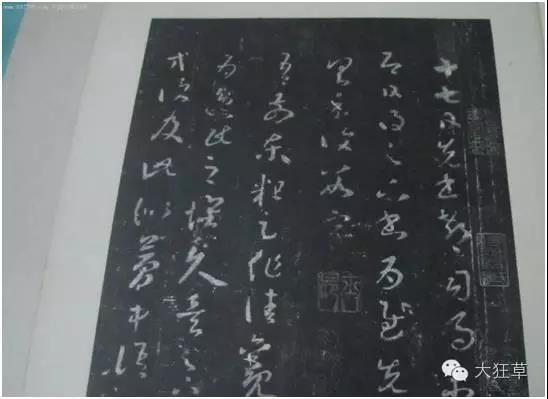 十七日先書郗司馬未
即日得足下書為慰先
具示復數字
吾前東粗足作佳觀
為逸民之懷久矣足下
等復及此似夢中語
大狂草